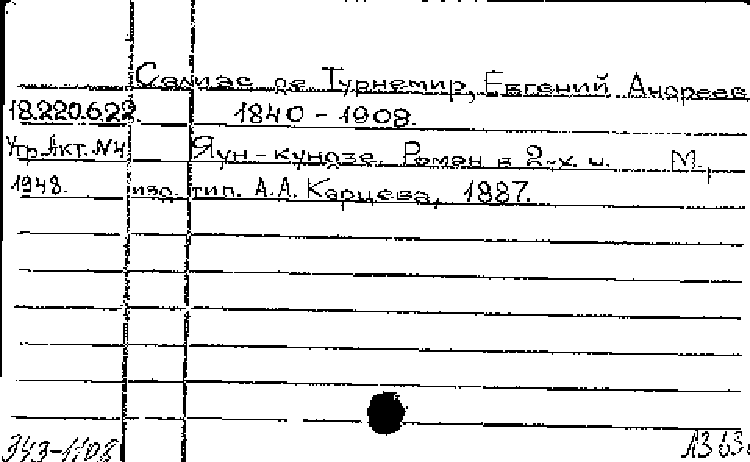 Салиас де Турнемир, Евгений Андреев
18.220.622. 1840 - 1908.
Утр. Акт. N4 Яун-кундзе. Роман в 2-х ч. М.,
1948. изд. тип. А.А. Карцева, 1887.